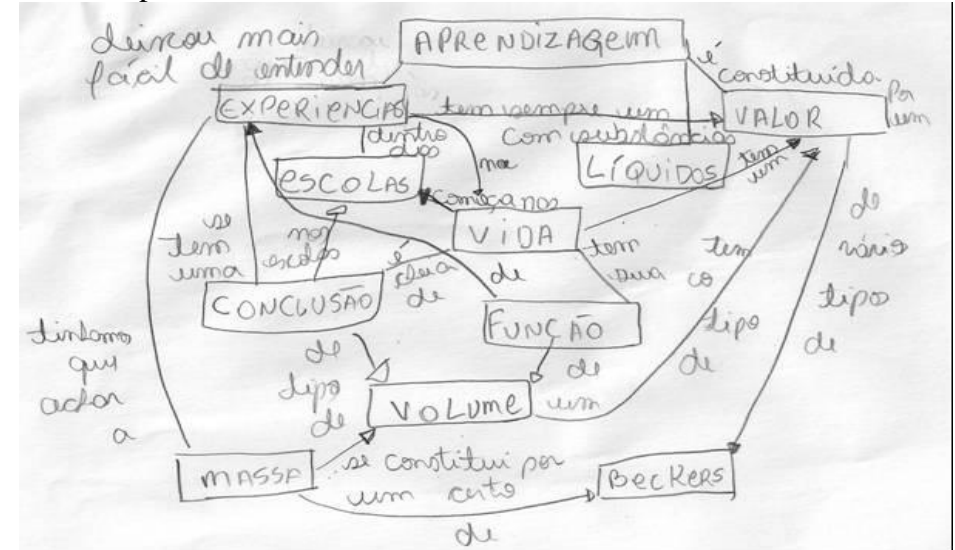 deixou mais
fácil de entender
APRENDIZAGEM
é
constituída
por
um
EXPERIENCIAS
tem sempre um
VALOR
com substâncias
dentro
das
na
LÍQUIDOS
tem
um
ESCOLAS
começa nas
VIDA
se
tem
uma
nas
escolas
é
cheia
de
de
tem
sua
tem
co
tipo
de
de
vários
tipos
de
CONCLUSÃO
FUNÇÃO
tinhamos
que
achar
a
de
tipo
de
de
um
VOLUME
MASSA
se constitui por
um certo
de
BECKERS